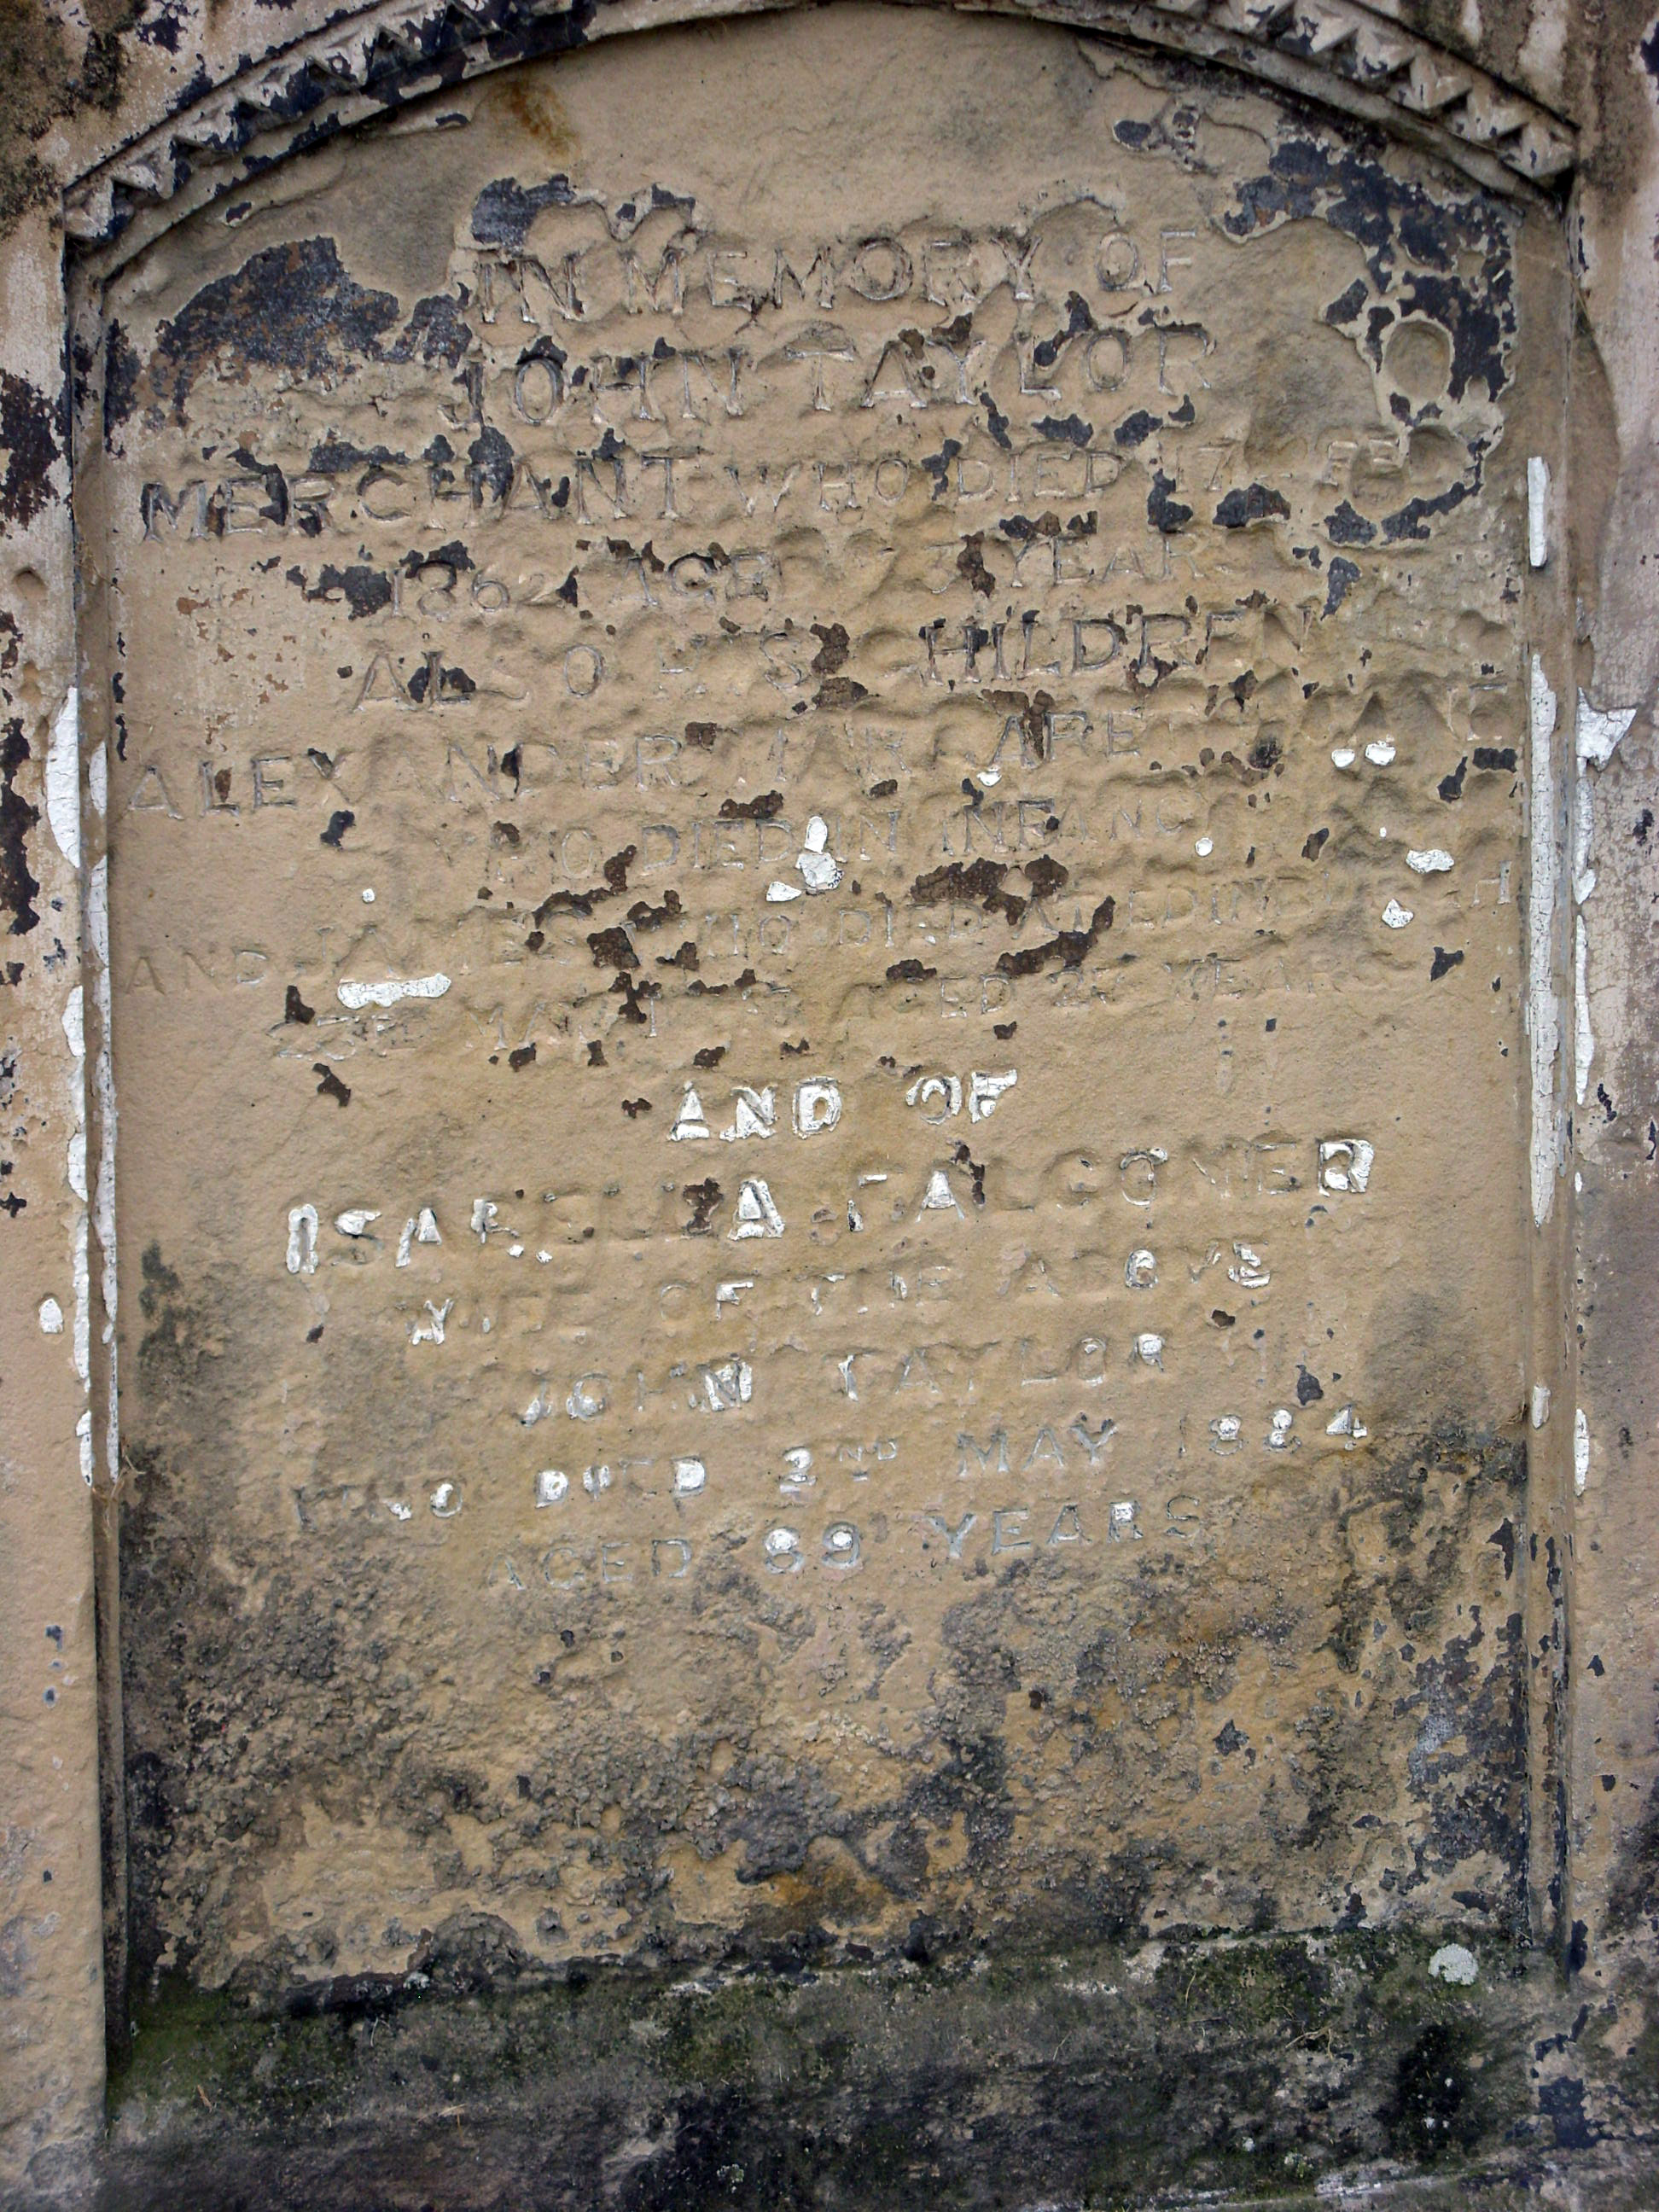 IN MEMORY OF
JOHN TAYLOR
MERCHANT WHO DIED 17 FEB
1862 AGED YEARS
ALSO HIS CHILDREN
ALEXANDER MARGARET
WHO DIED IN INFANCY
AND JAMES WHO DIED AT EDINBURGH
AGED YEARS
AND OF
ISABELLA FALCONER
WIFE OF THE ABOVE
JOHN TAYLOR
WHO DIED 2ND MAY 1884
AGED 89 YEARS